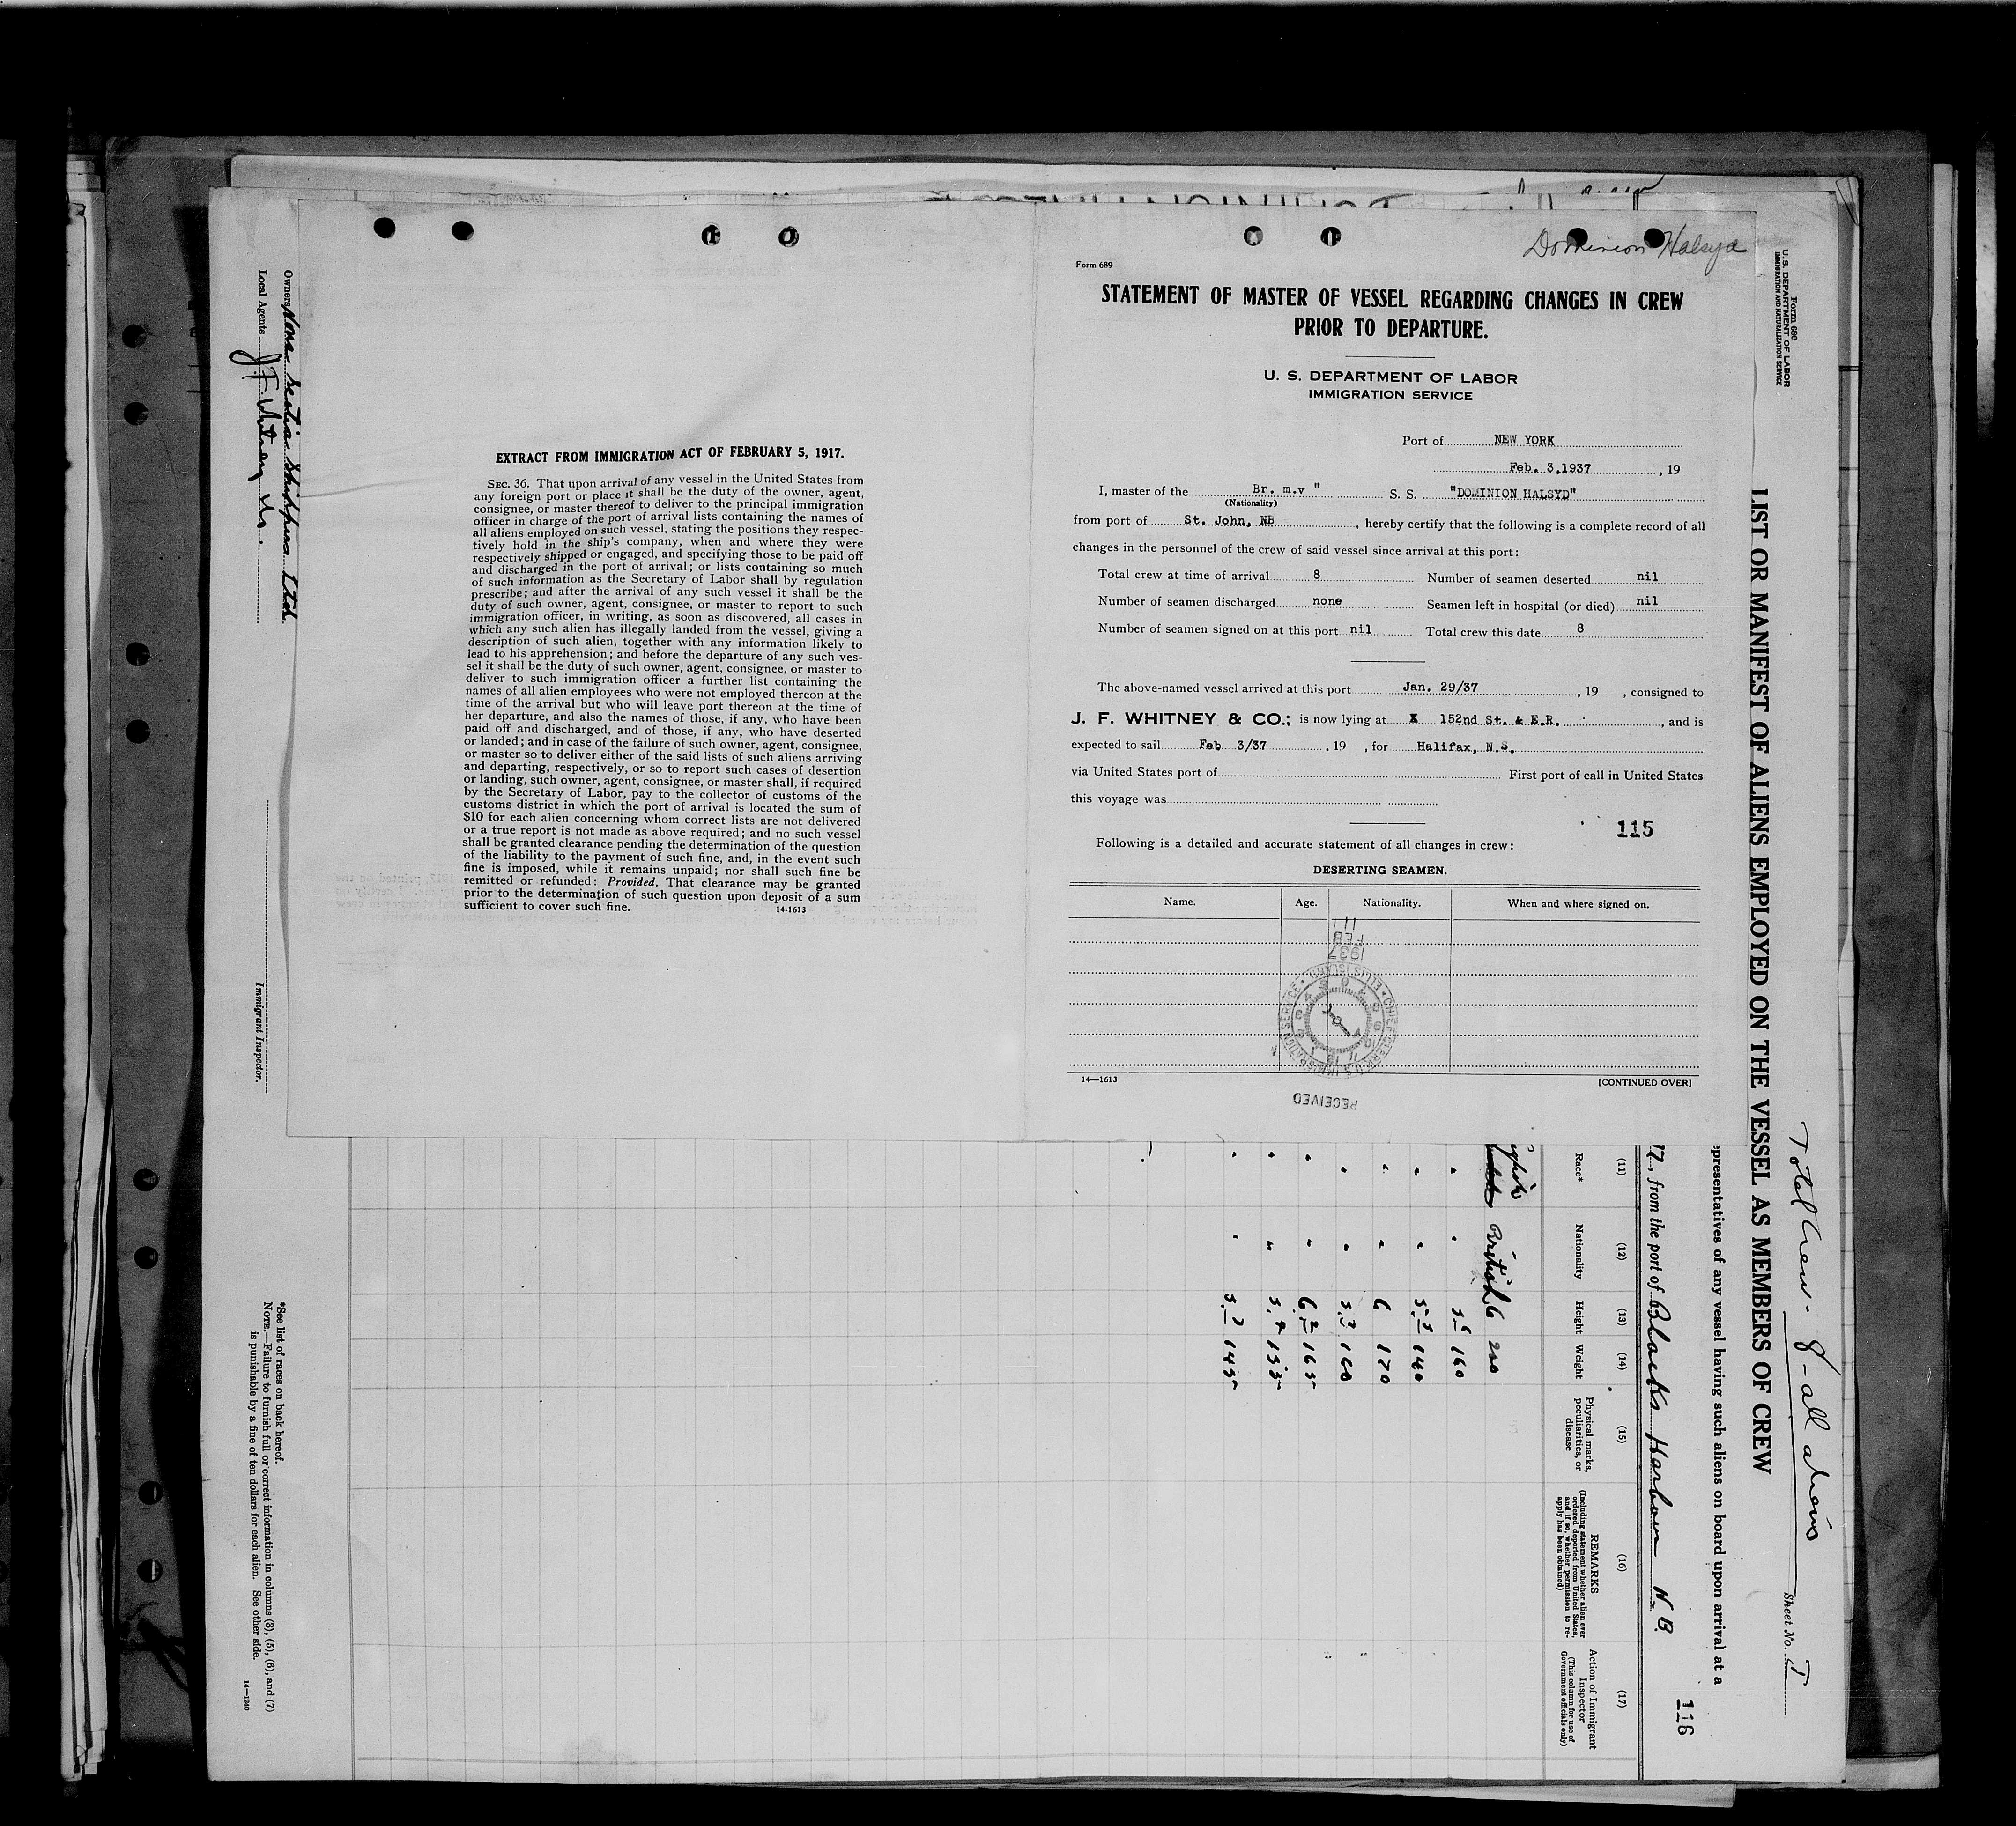 Dominion Halsyd
Form 689
STATEMENT OF MASTER OF VESSEL REGARDING CHANGES IN CREW
PRIOR TO DEPARTURE.
U. S. DEPARTMENT OF LABOR
IMMIGRATION SERVICE
Port of NEW YORK
Feb. 3.1937, 19
I, master of the Br. m.v " S. S. "DOMINION HALSYD"
(Nationality)
from port of St. John, NB, hereby certify that the following is a complete record of all
changes in the personnel of the crew of said vessel since arrival at this port:
Total crew at time of arrival 8 Number of seamen deserted nil
Number of seamen discharged none Seamen left in hospital (or died) nil
Number of seamen signed on at this port nil Total crew this date 8
The above-named vessel arrived at this port Jan. 29/37, 19 , consigned to
J. F. WHITNEY & CO.; is now lying at X 152nd St. & E.R., and is
expected to sail Feb 3/37, 19 , for Halifax, N.S.
via United States port of First port of call in United States
this voyage was
115
Following is a detailed and accurate statement of all changes in crew:
DESERTING SEAMEN.
Name. Age. Nationality. When and where signed on.
11
FEB
1937
CHIEF CLERK U.S. IMMIGRATION SERVICE • ELLIS ISLAND •
RECEIVED
14—1613 [CONTINUED OVER]
EXTRACT FROM IMMIGRATION ACT OF FEBRUARY 5, 1917.
SEC. 36. That upon arrival of any vessel in the United States from
any foreign port or place it shall be the duty of the owner, agent,
consignee, or master thereof to deliver to the principal immigration
officer in charge of the port of arrival lists containing the names of
all aliens employed on such vessel, stating the positions they respec-
tively hold in the ship's company, when and where they were
respectively shipped or engaged, and specifying those to be paid off
and discharged in the port of arrival; or lists containing so much
of such information as the Secretary of Labor shall by regulation
prescribe; and after the arrival of any such vessel it shall be the
duty of such owner, agent, consignee, or master to report to such
immigration officer, in writing, as soon as discovered, all cases in
which any such alien has illegally landed from the vessel, giving a
description of such alien, together with any information likely to
lead to his apprehension; and before the departure of any such ves-
sel it shall be the duty of such owner, agent, consignee, or master to
deliver to such immigration officer a further list containing the
names of all alien employees who were not employed thereon at the
time of the arrival but who will leave port thereon at the time of
her departure, and also the names of those, if any, who have been
paid off and discharged, and of those, if any, who have deserted
or landed; and in case of the failure of such owner, agent, consignee,
or master so to deliver either of the said lists of such aliens arriving
and departing, respectively, or so to report such cases of desertion
or landing, such owner, agent, consignee, or master shall, if required
by the Secretary of Labor, pay to the collector of customs of the
customs district in which the port of arrival is located the sum of
$10 for each alien concerning whom correct lists are not delivered
or a true report is not made as above required; and no such vessel
shall be granted clearance pending the determination of the question
of the liability to the payment of such fine, and, in the event such
fine is imposed, while it remains unpaid; nor shall such fine be
remitted or refunded: Provided, That clearance may be granted
prior to the determination of such question upon deposit of a sum
sufficient to cover such fine.
14-1613
Form 680
U. S. DEPARTMENT OF LABOR
IMMIGRATION AND NATURALIZATION SERVICE
Total Crew - 8 - all
Sheet No.
LIST OR MANIFEST OF ALIENS EMPLOYED ON THE VESSEL AS MEMBERS OF CREW
epresentatives of any vessel having such aliens on board upon arrival at a
116
, from the port of Blacks Harbour N.B.
(11) (12) (13) (14) (15) (16) (17)
Race* Nationality Height Weight Physical marks, peculiarities, or disease
REMARKS
(Including statement whether alien ever ordered deported from United States, and if so, whether permission to re-apply has been obtained)
Action of Immigrant Inspector
(This column for use of Government officials only)
British 6 200
" " 5.6 160
" " 5.3 140
" " 6 170
" " 5.7 160
" " 6.2 165
" " 5.4 135
" " 5.7 145
Owners Nova Scotia Shippers Ltd.
Local Agents J. F. Whitney & Co.
Immigrant Inspector.
*See list of races on back hereof.
NOTE.—Failure to furnish full or correct information in columns (3), (5), (6), and (7)
is punishable by a fine of ten dollars for each alien. See other side.
14—1240